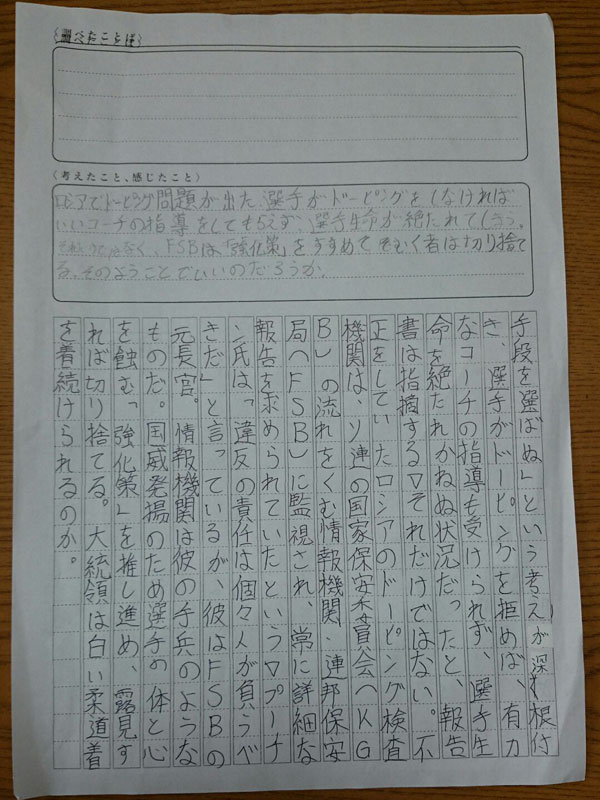 調べたことば
(考えたこと、感じたこと)
ロシアでドーピング問題が出た。選手がドーピングをしなければ
いいコーチの指導をしてもらえず、選手生命が絶たれてしまう。
それだけではなく、FSBは「強化策」をすすめてそむく者は切り捨て
る。そのようことでいいのだろうか。
手段を選ばぬ」という考えが深く根付
き、選手がドーピングを拒めば、有力
なコーチの指導も受けられず、選手生
命を絶たれかねぬ状況だったと、報告
書は指摘する▽それだけではない。不
正をしていたロシアのドーピング検査
機関は、ソ連の国家保安委員会(KG
B)の流れをくむ情報機関・連邦保安
局(FSB)に監視され、常に詳細な
報告を求められていたという▽プーチ
ン氏は「違反の責任は個々人が負うべ
きだ」と言っているが、彼はFSBの
元長官。情報機関は彼の手兵のような
ものだ。国威発揚のため選手の体と心
を蝕む「強化策」を推し進め、露見す
れば切り捨てる。大統領は白い柔道着
を着続けられるのか。